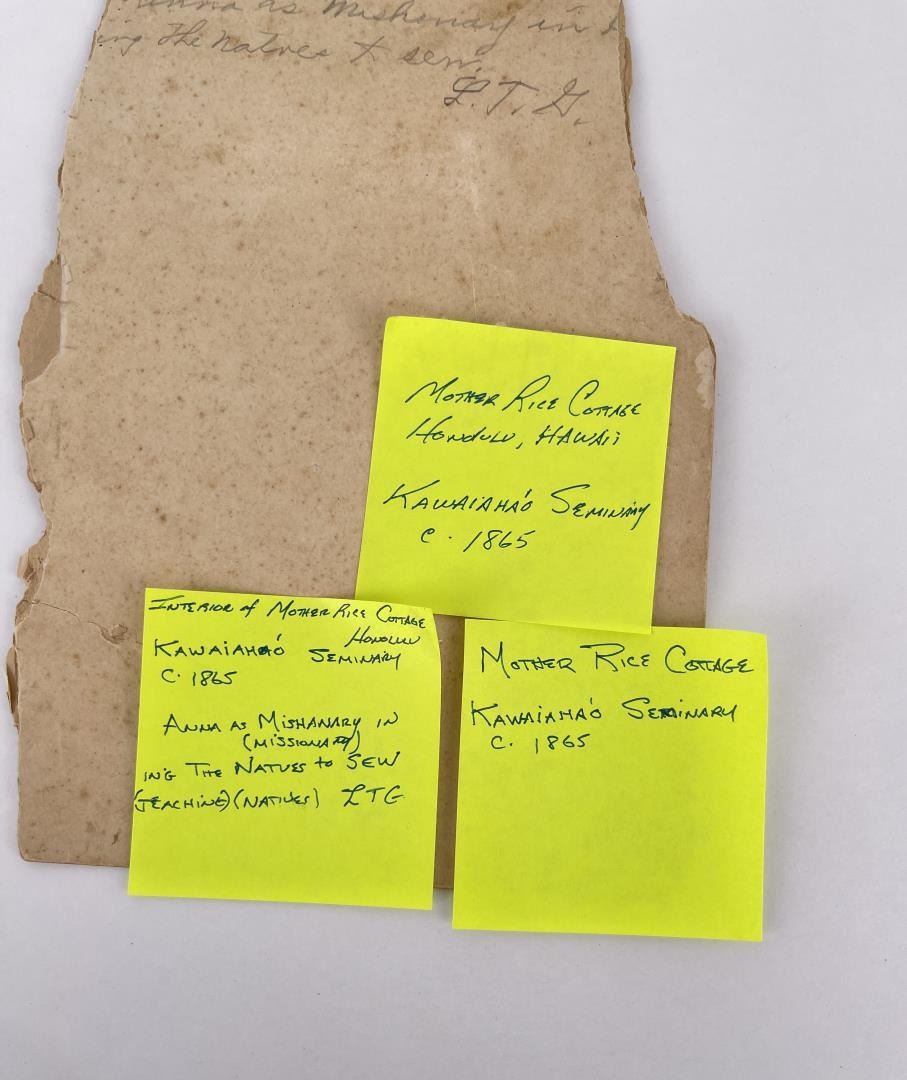 Anna as Mishonary in
ing the natves to sew.
L.T.G.
MOTHER RICE COTTAGE
HONOLULU, HAWAII
KAWAIAHA'O SEMINARY
C. 1865
INTERIOR of MOTHER RICE COTTAGE
HONOLULU
KAWAIAHAO' SEMINARY
C. 1865
ANNA AS MISHANARY IN
(MISSIONARY)
ING THE NATVES to SEW
(TEACHING) (NATIVES) LTG
MOTHER RICE COTTAGE
KAWAIAHA'O SEMINARY
C. 1865